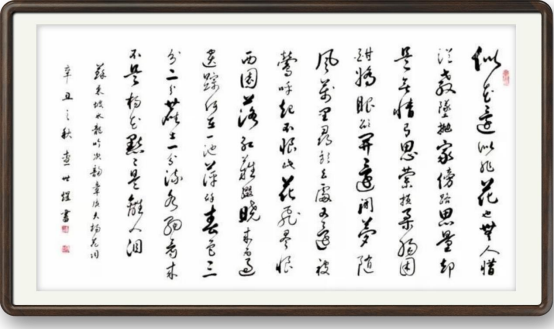 似花還似非花也無人惜
從教墜拋家傍路思量却
是無情有思縈損柔腸困
酣嬌眼欲開還閉夢隨
風萬里尋郎去處又還被
鶯呼起不恨此花飛盡恨
西園落紅難綴曉來雨過
遺踪何在一池萍碎春色三
分二分塵土一分流水細看來
不是楊花點點是離人泪
蘇東坡水龍吟次韵章質夫楊花詞
辛丑之秋查世書